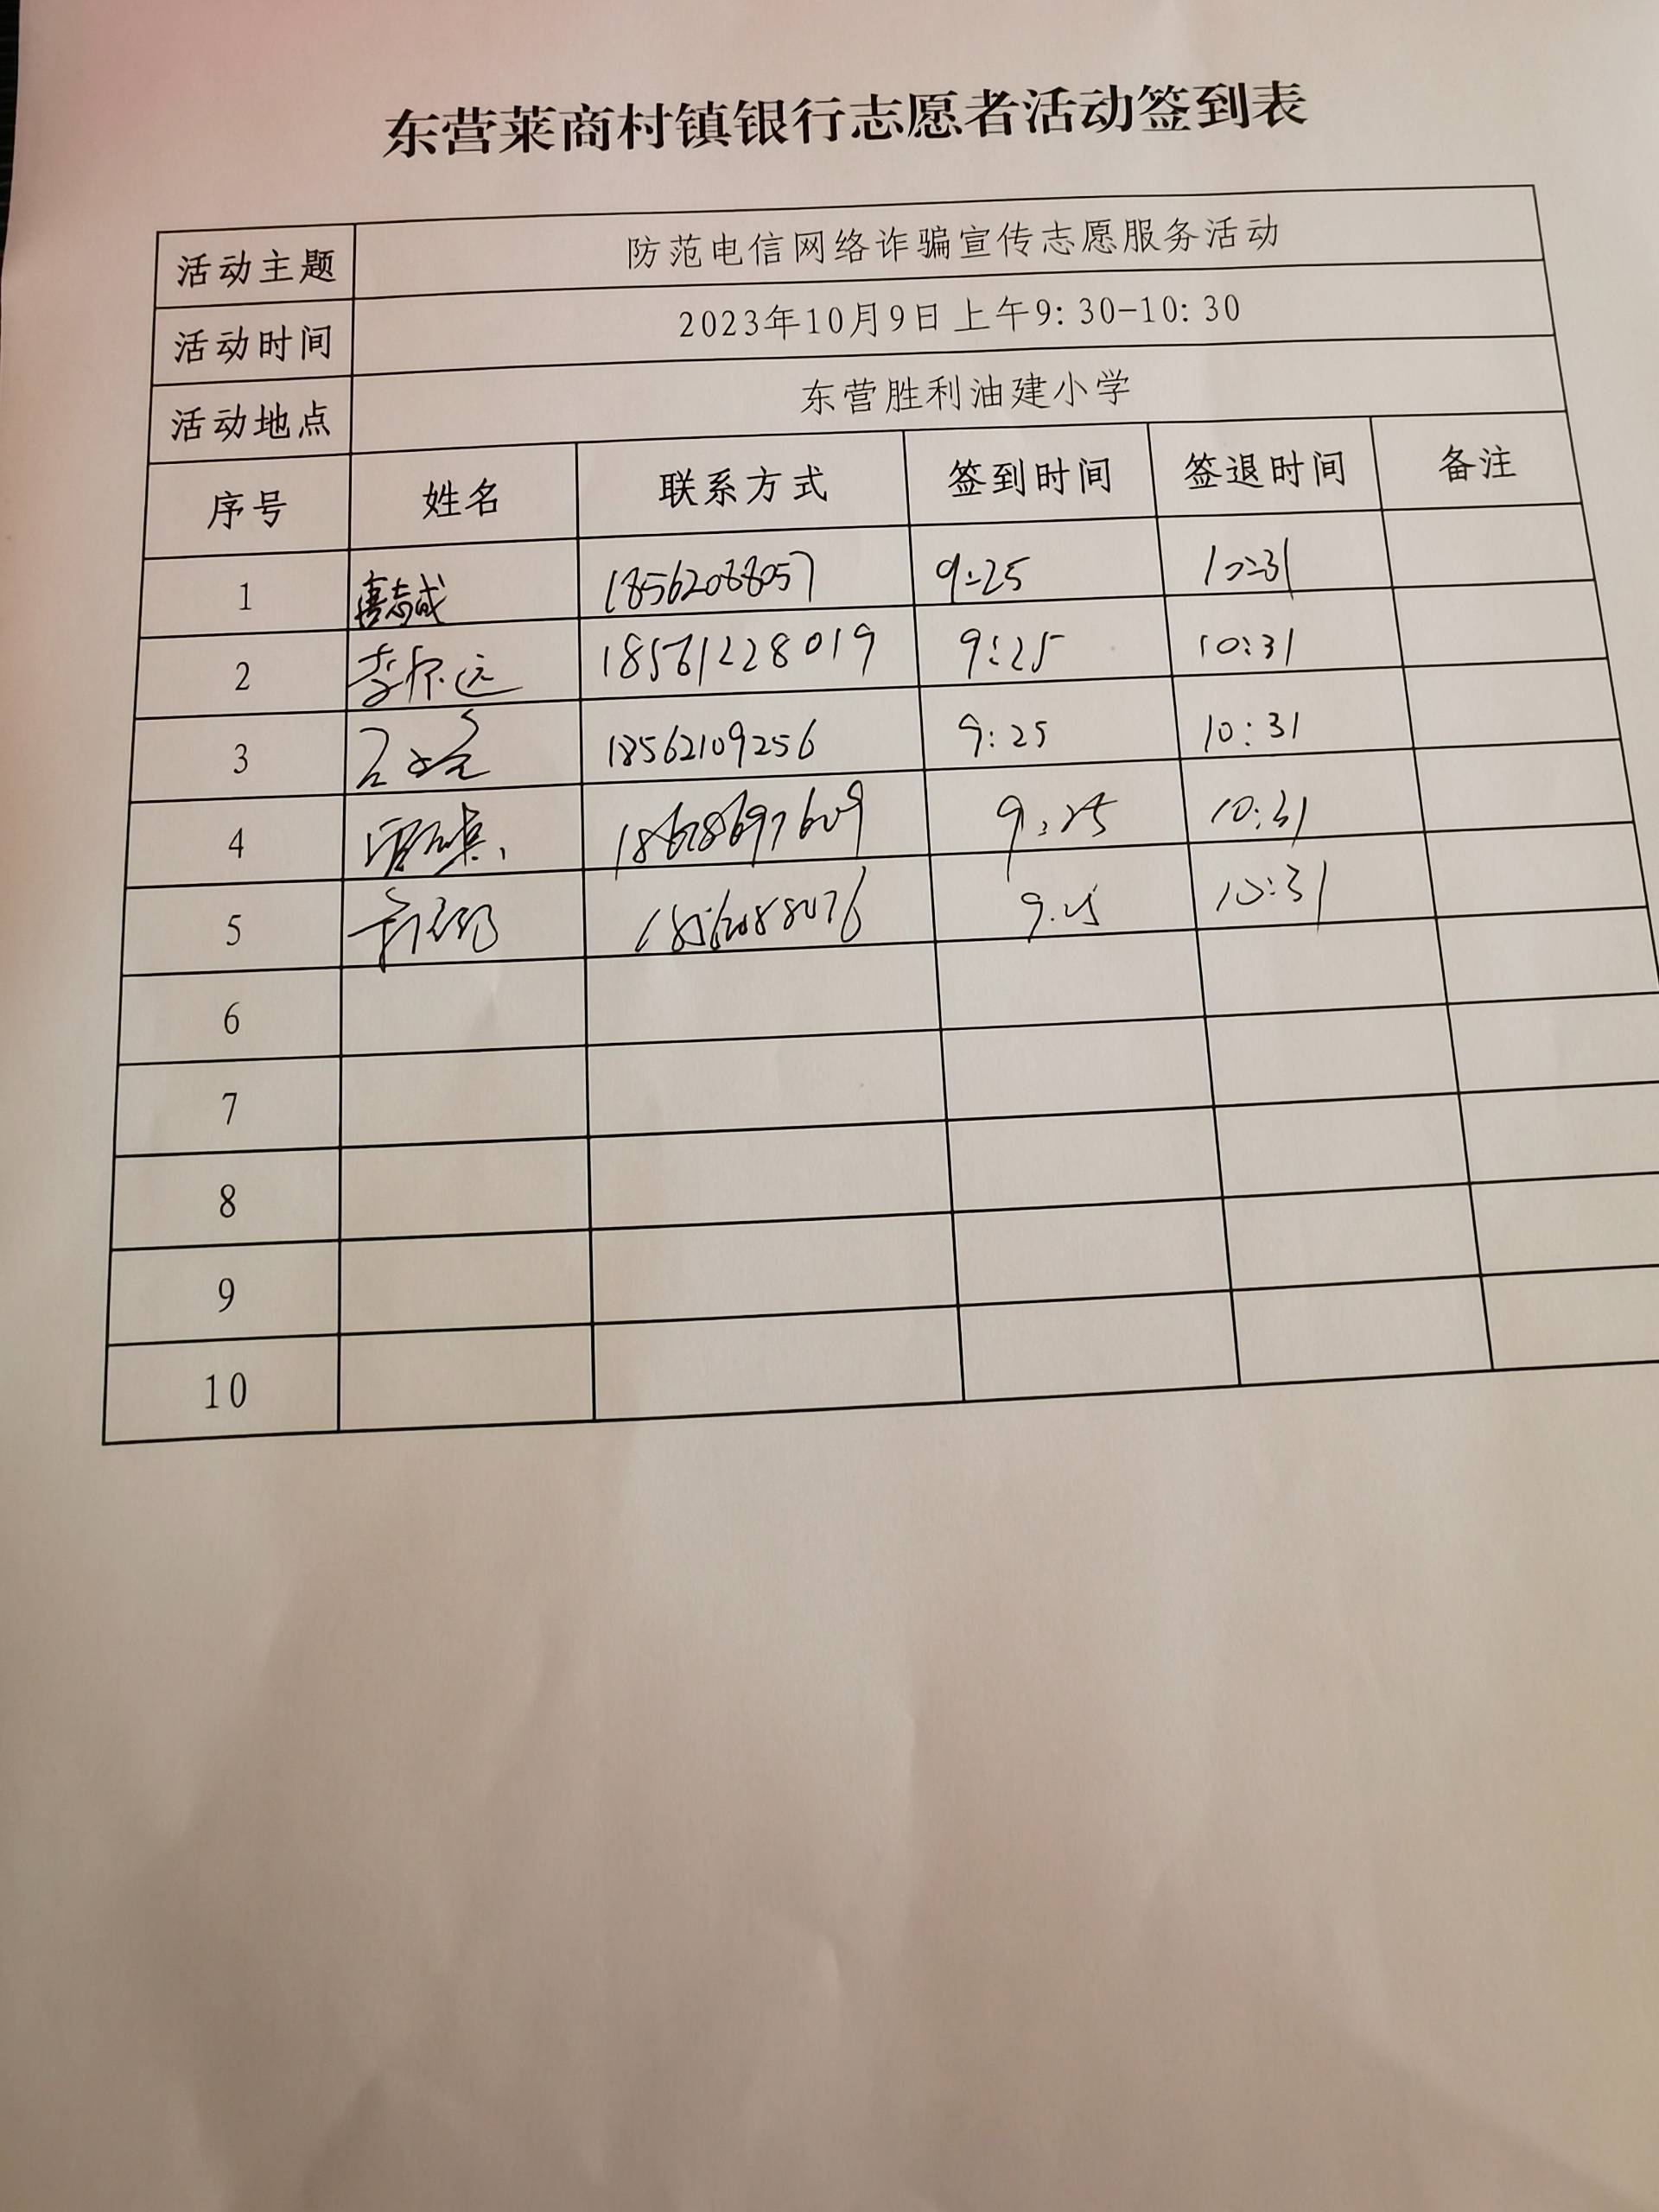 东营莱商村镇银行志愿者活动签到表
活动主题 防范电信网络诈骗宣传志愿服务活动
活动时间 2023年10月9日上午9:30-10:30
活动地点 东营胜利油建小学
序号 姓名 联系方式 签到时间 签退时间 备注
1 唐志成 18562088057 9:25 10:31
2 李怀远 18561228019 9:25 10:31
3 18562109256 9:25 10:31
4 18678697609 9:25 10:31
5 18562088076 9:25 10:31
6
7
8
9
10